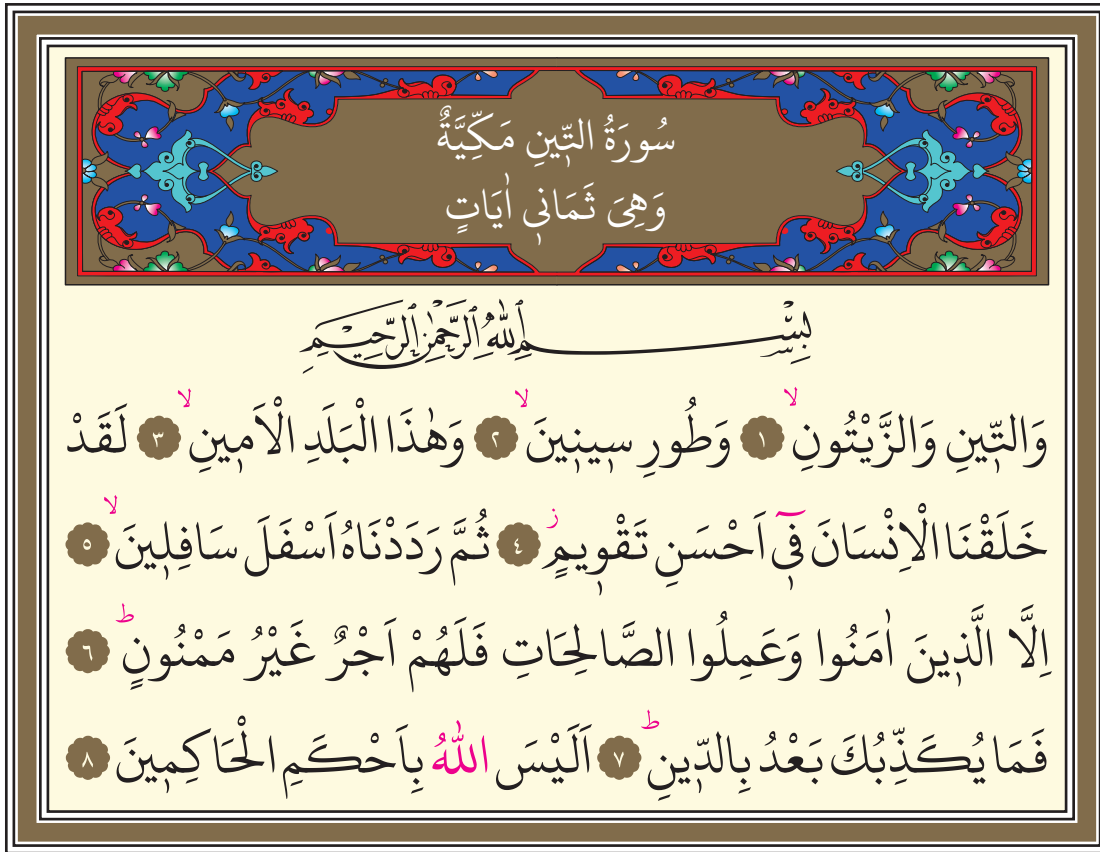 سُورَةُ التّ۪ينِ مَكِّيَّةٌ
وَهِىَ ثَمَانى۪ اٰيَاتٍ
بِسْمِ اللّٰهِ الرَّحْمٰنِ الرَّح۪يمِ
وَالتّ۪ينِ وَالزَّيْتُونِۙ ﴿١﴾ وَطُورِ س۪ين۪ينَۙ ﴿٢﴾ وَهٰذَا الْبَلَدِ الْاَم۪ينِۙ ﴿٣﴾ لَقَدْ
خَلَقْنَا الْاِنْسَانَ ف۪ٓي اَحْسَنِ تَقْو۪يمٍۘ ز ﴿٤﴾ ثُمَّ رَدَدْنَاهُ اَسْفَلَ سَافِل۪ينَۙ ﴿٥﴾
اِلَّا الَّذ۪ينَ اٰمَنُوا وَعَمِلُوا الصَّالِحَاتِ فَلَهُمْ اَجْرٌ غَيْرُ مَمْنُونٍۜ ﴿٦﴾
فَمَا يُكَذِّبُكَ بَعْدُ بِالدّ۪ينِۜ ﴿٧﴾ اَلَيْسَ اللّٰهُ بِاَحْكَمِ الْحَاكِم۪ينَ ﴿٨﴾